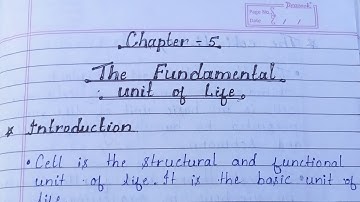 Peacock
Page No.
Date / /
Chapter - 5
The Fundamental
unit of Life.
* Introduction
• Cell is the structural and functional
unit of life. It is the basic unit of
life